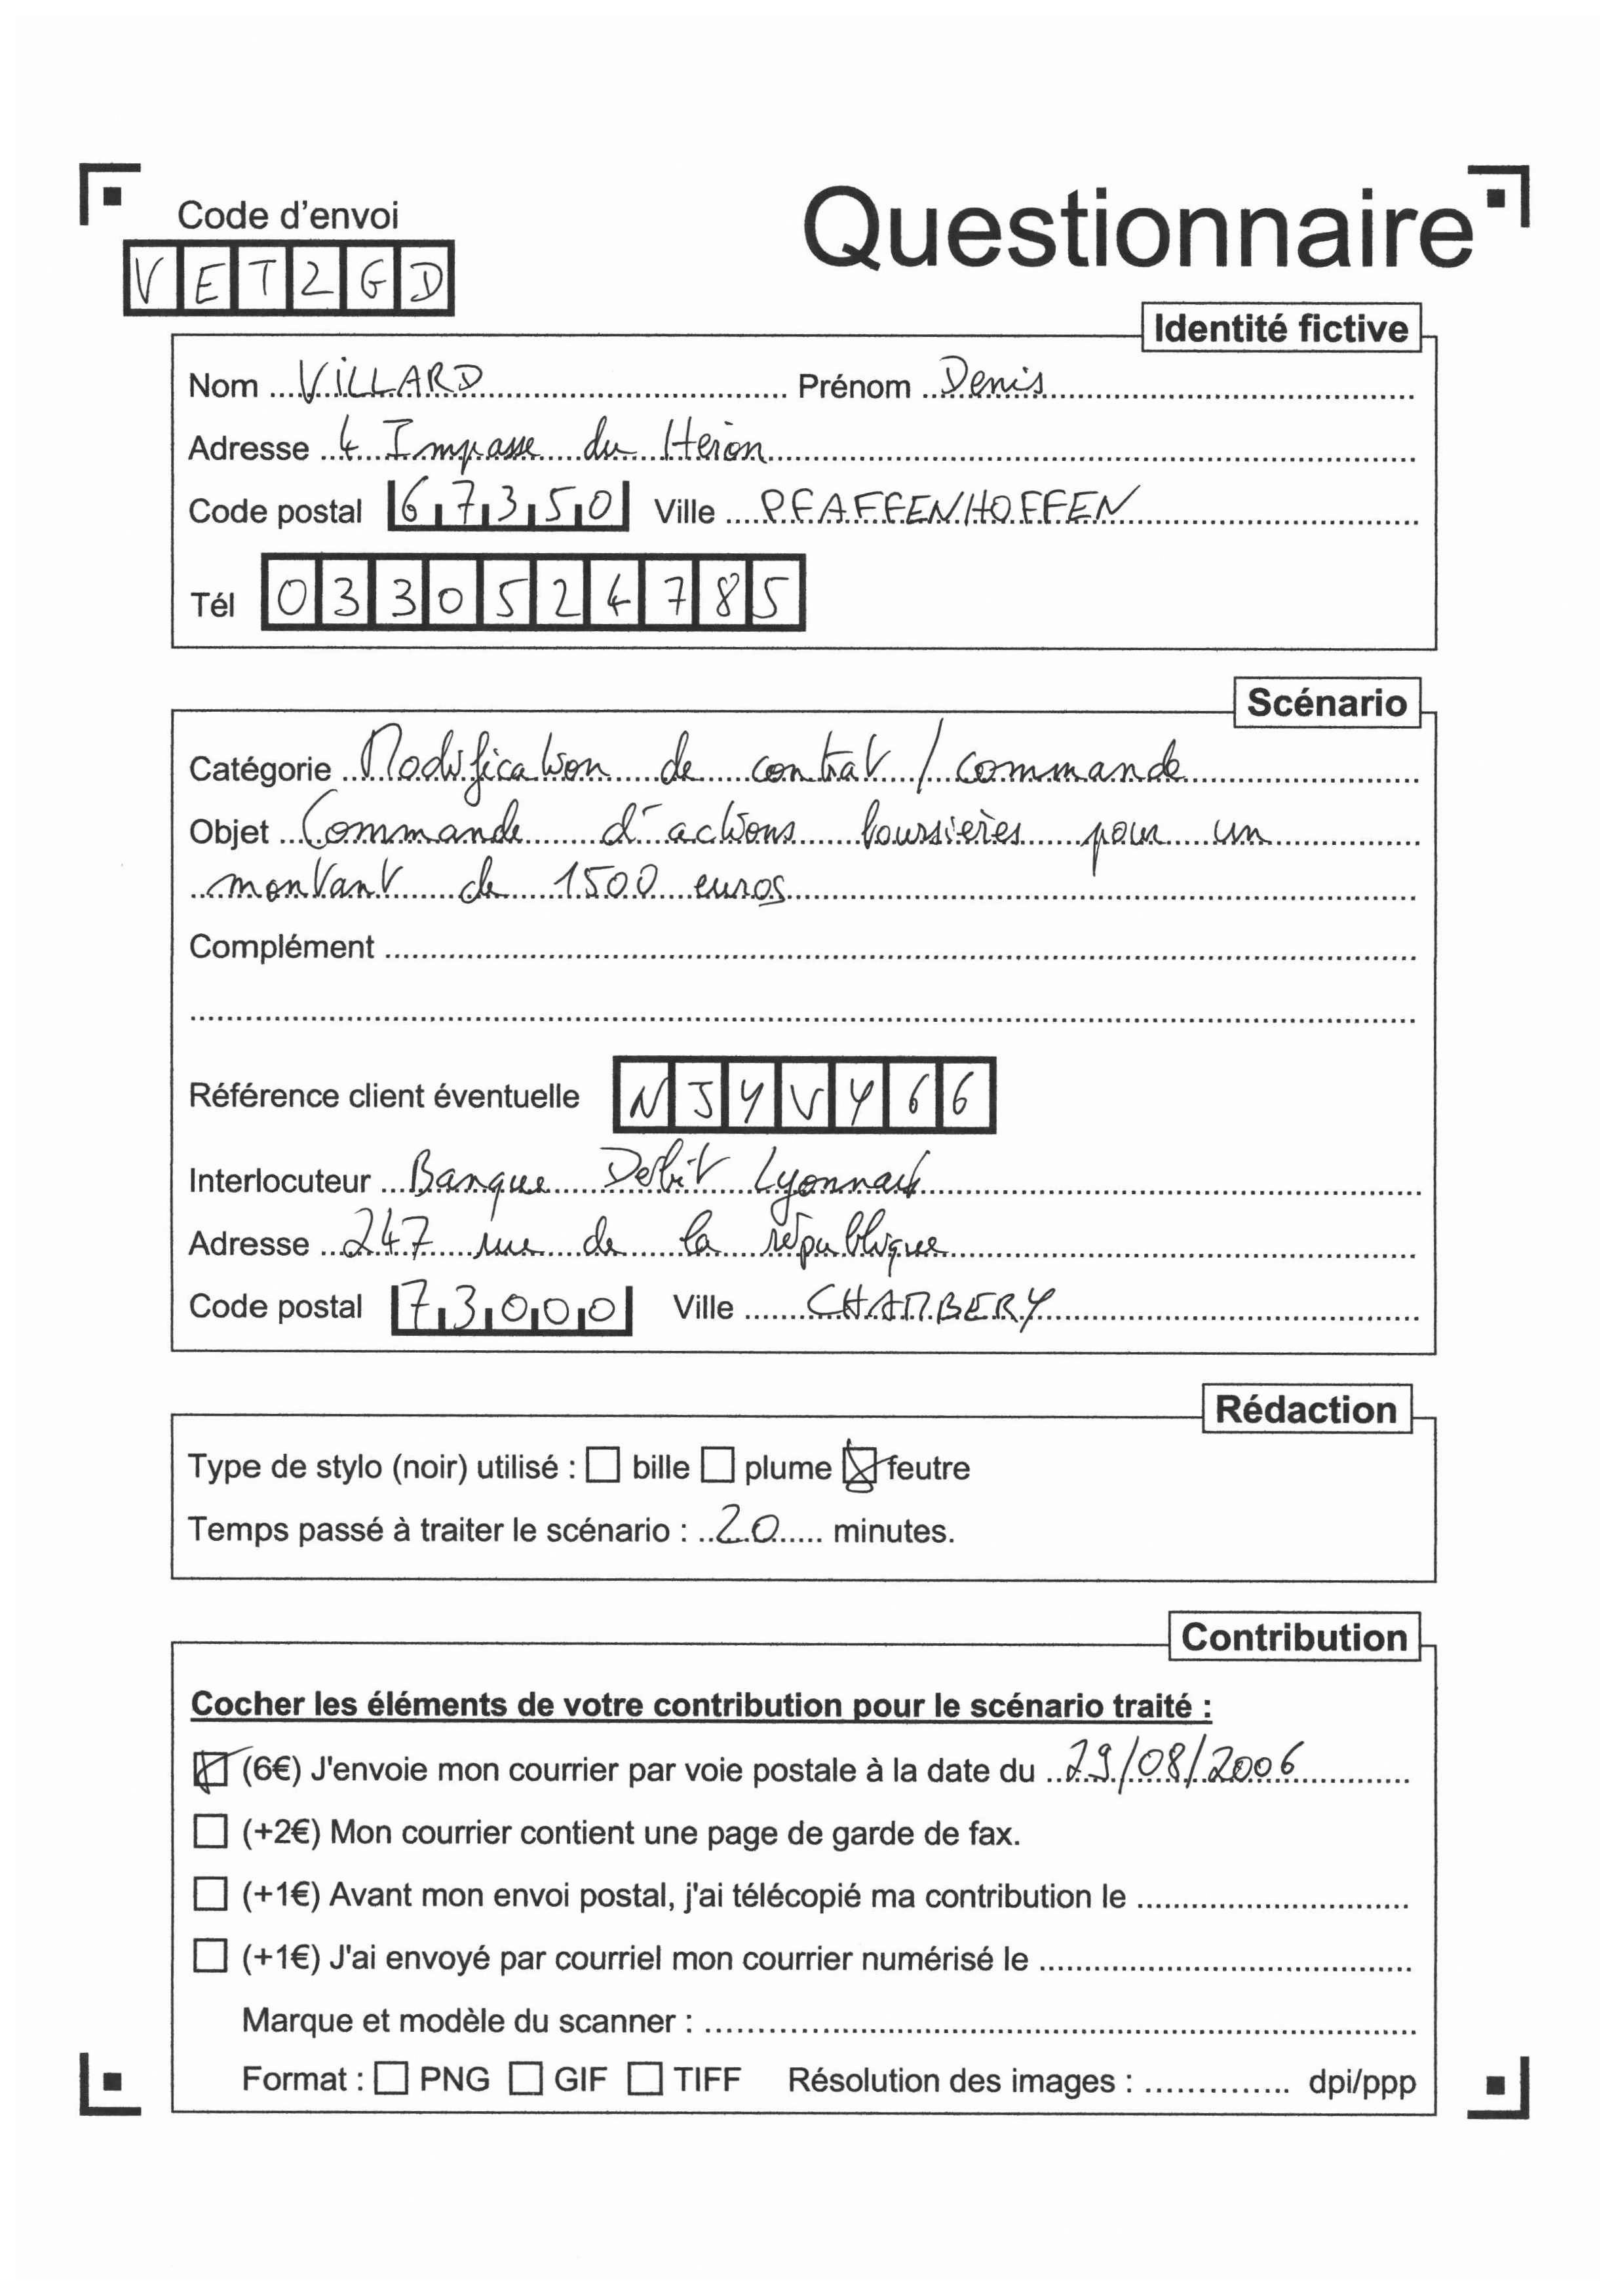 Code d'envoi
Questionnaire
VET2GD
Identité fictive
Nom VILLARD Prénom Denis
Adresse 4 Impasse du Heron
Code postal 67350 Ville PFAFFENHOFFEN
Tél 0330524785
Scénario
Catégorie Modification de contrat / commande
Objet Commande d'actions boursières pour un
montant de 1500 euros
Complément
Référence client éventuelle NJYVY66
Interlocuteur Banque Debit Lyonnais
Adresse 247 rue de la république
Code postal 73000 Ville CHAMBERY
Rédaction
Type de stylo (noir) utilisé : ☐ bille ☐ plume ☒ feutre
Temps passé à traiter le scénario : 20 minutes.
Contribution
Cocher les éléments de votre contribution pour le scénario traité :
☒ (6€) J'envoie mon courrier par voie postale à la date du 29/08/2006
☐ (+2€) Mon courrier contient une page de garde de fax.
☐ (+1€) Avant mon envoi postal, j'ai télécopié ma contribution le
☐ (+1€) J'ai envoyé par courriel mon courrier numérisé le
Marque et modèle du scanner :
Format : ☐ PNG ☐ GIF ☐ TIFF Résolution des images : dpi/ppp